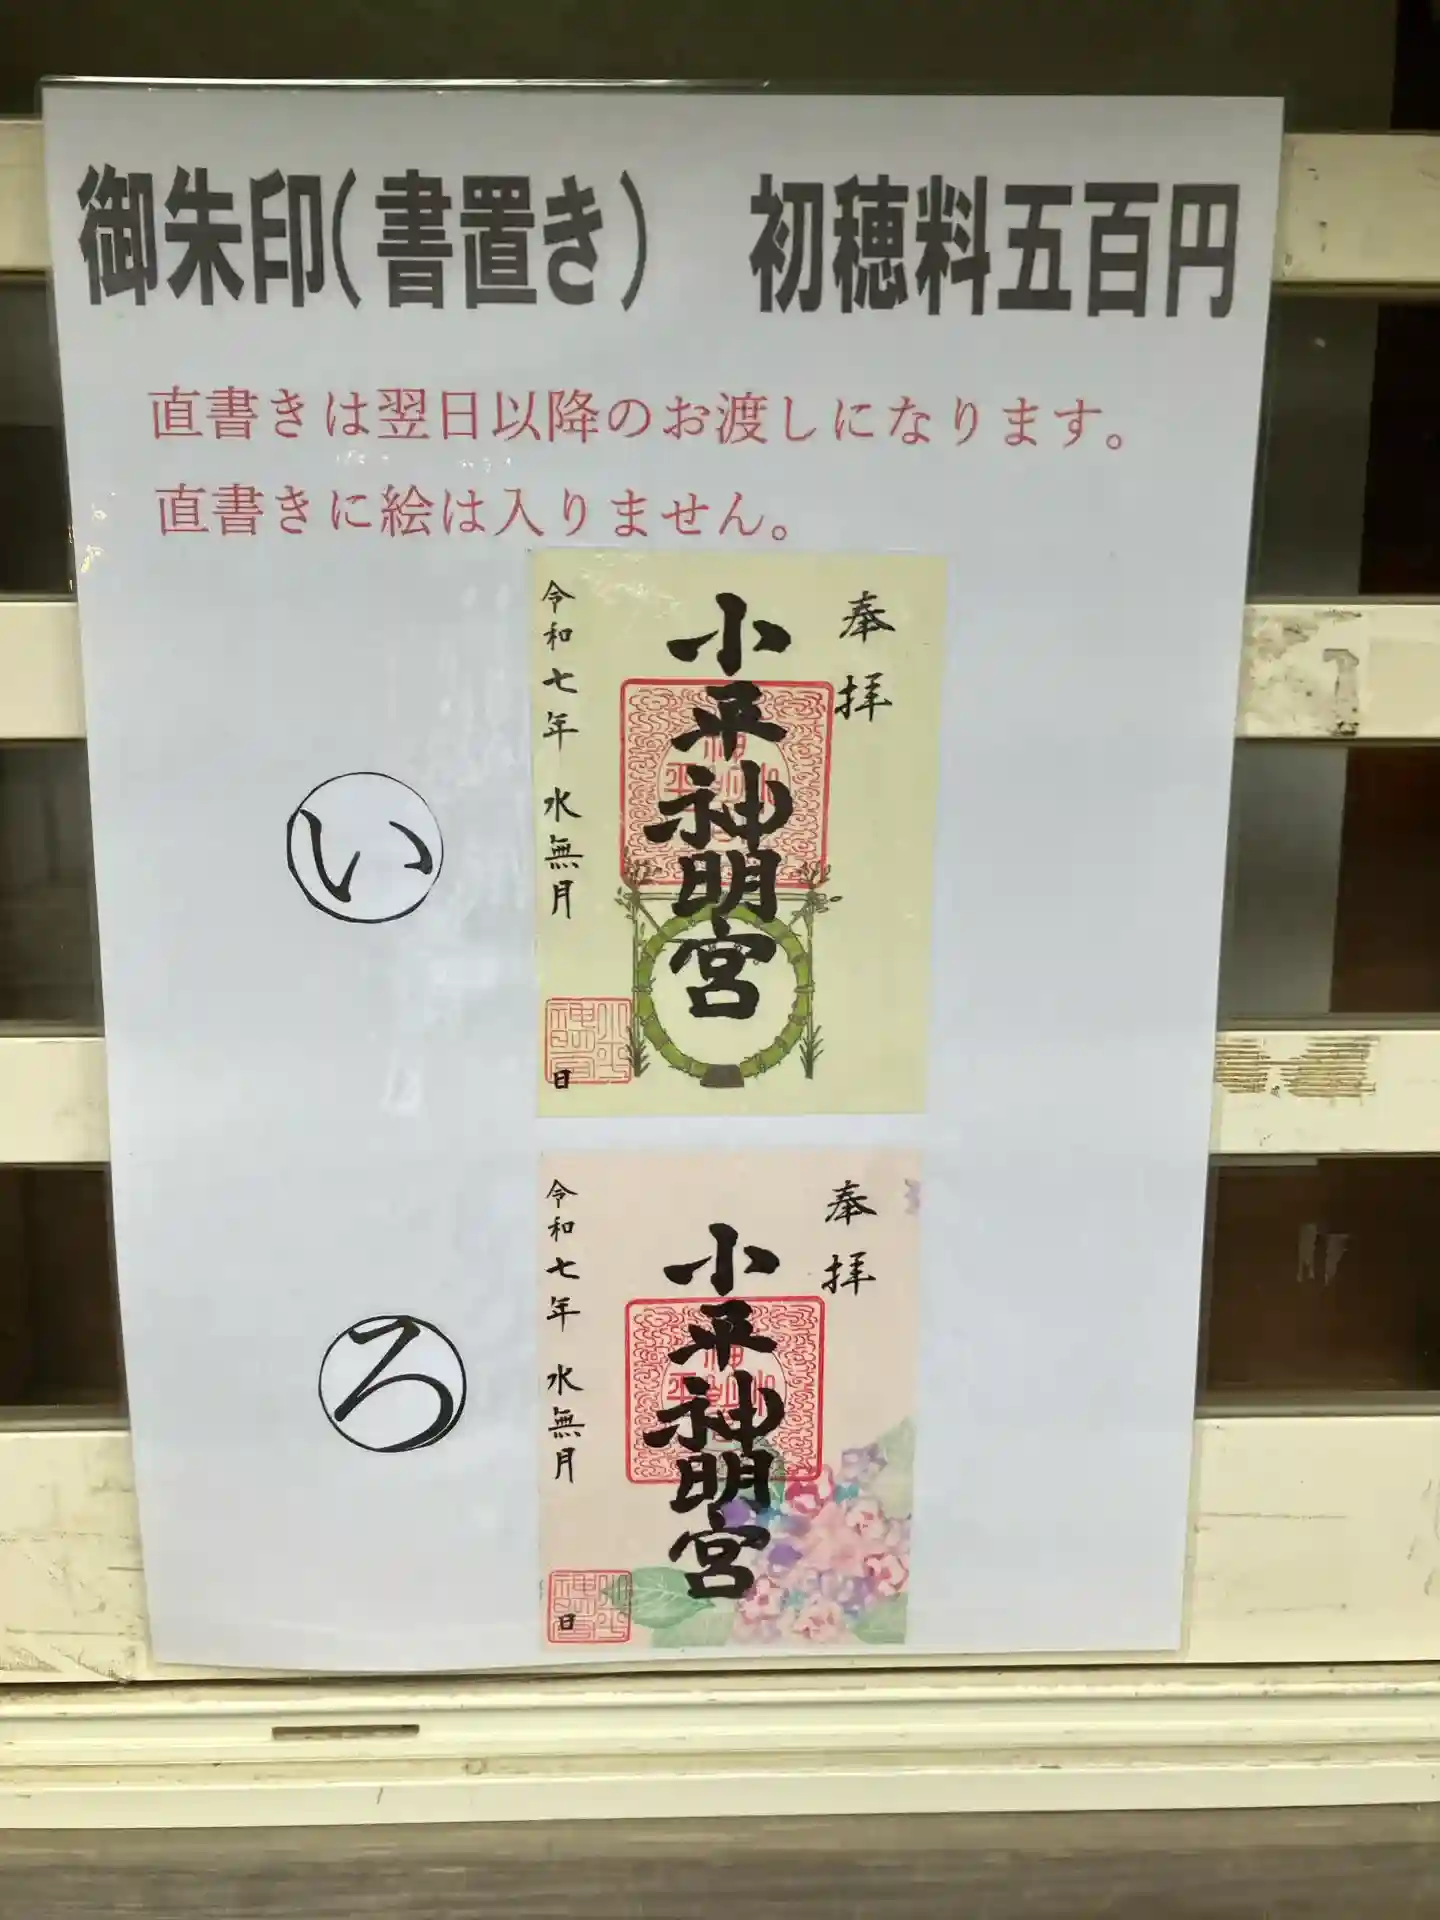 御朱印(書置き)　初穂料五百円
直書きは翌日以降のお渡しになります。
直書きに絵は入りません。
い
奉拝
小平神明宮
令和七年 水無月
日
ろ
奉拝
小平神明宮
令和七年 水無月
日